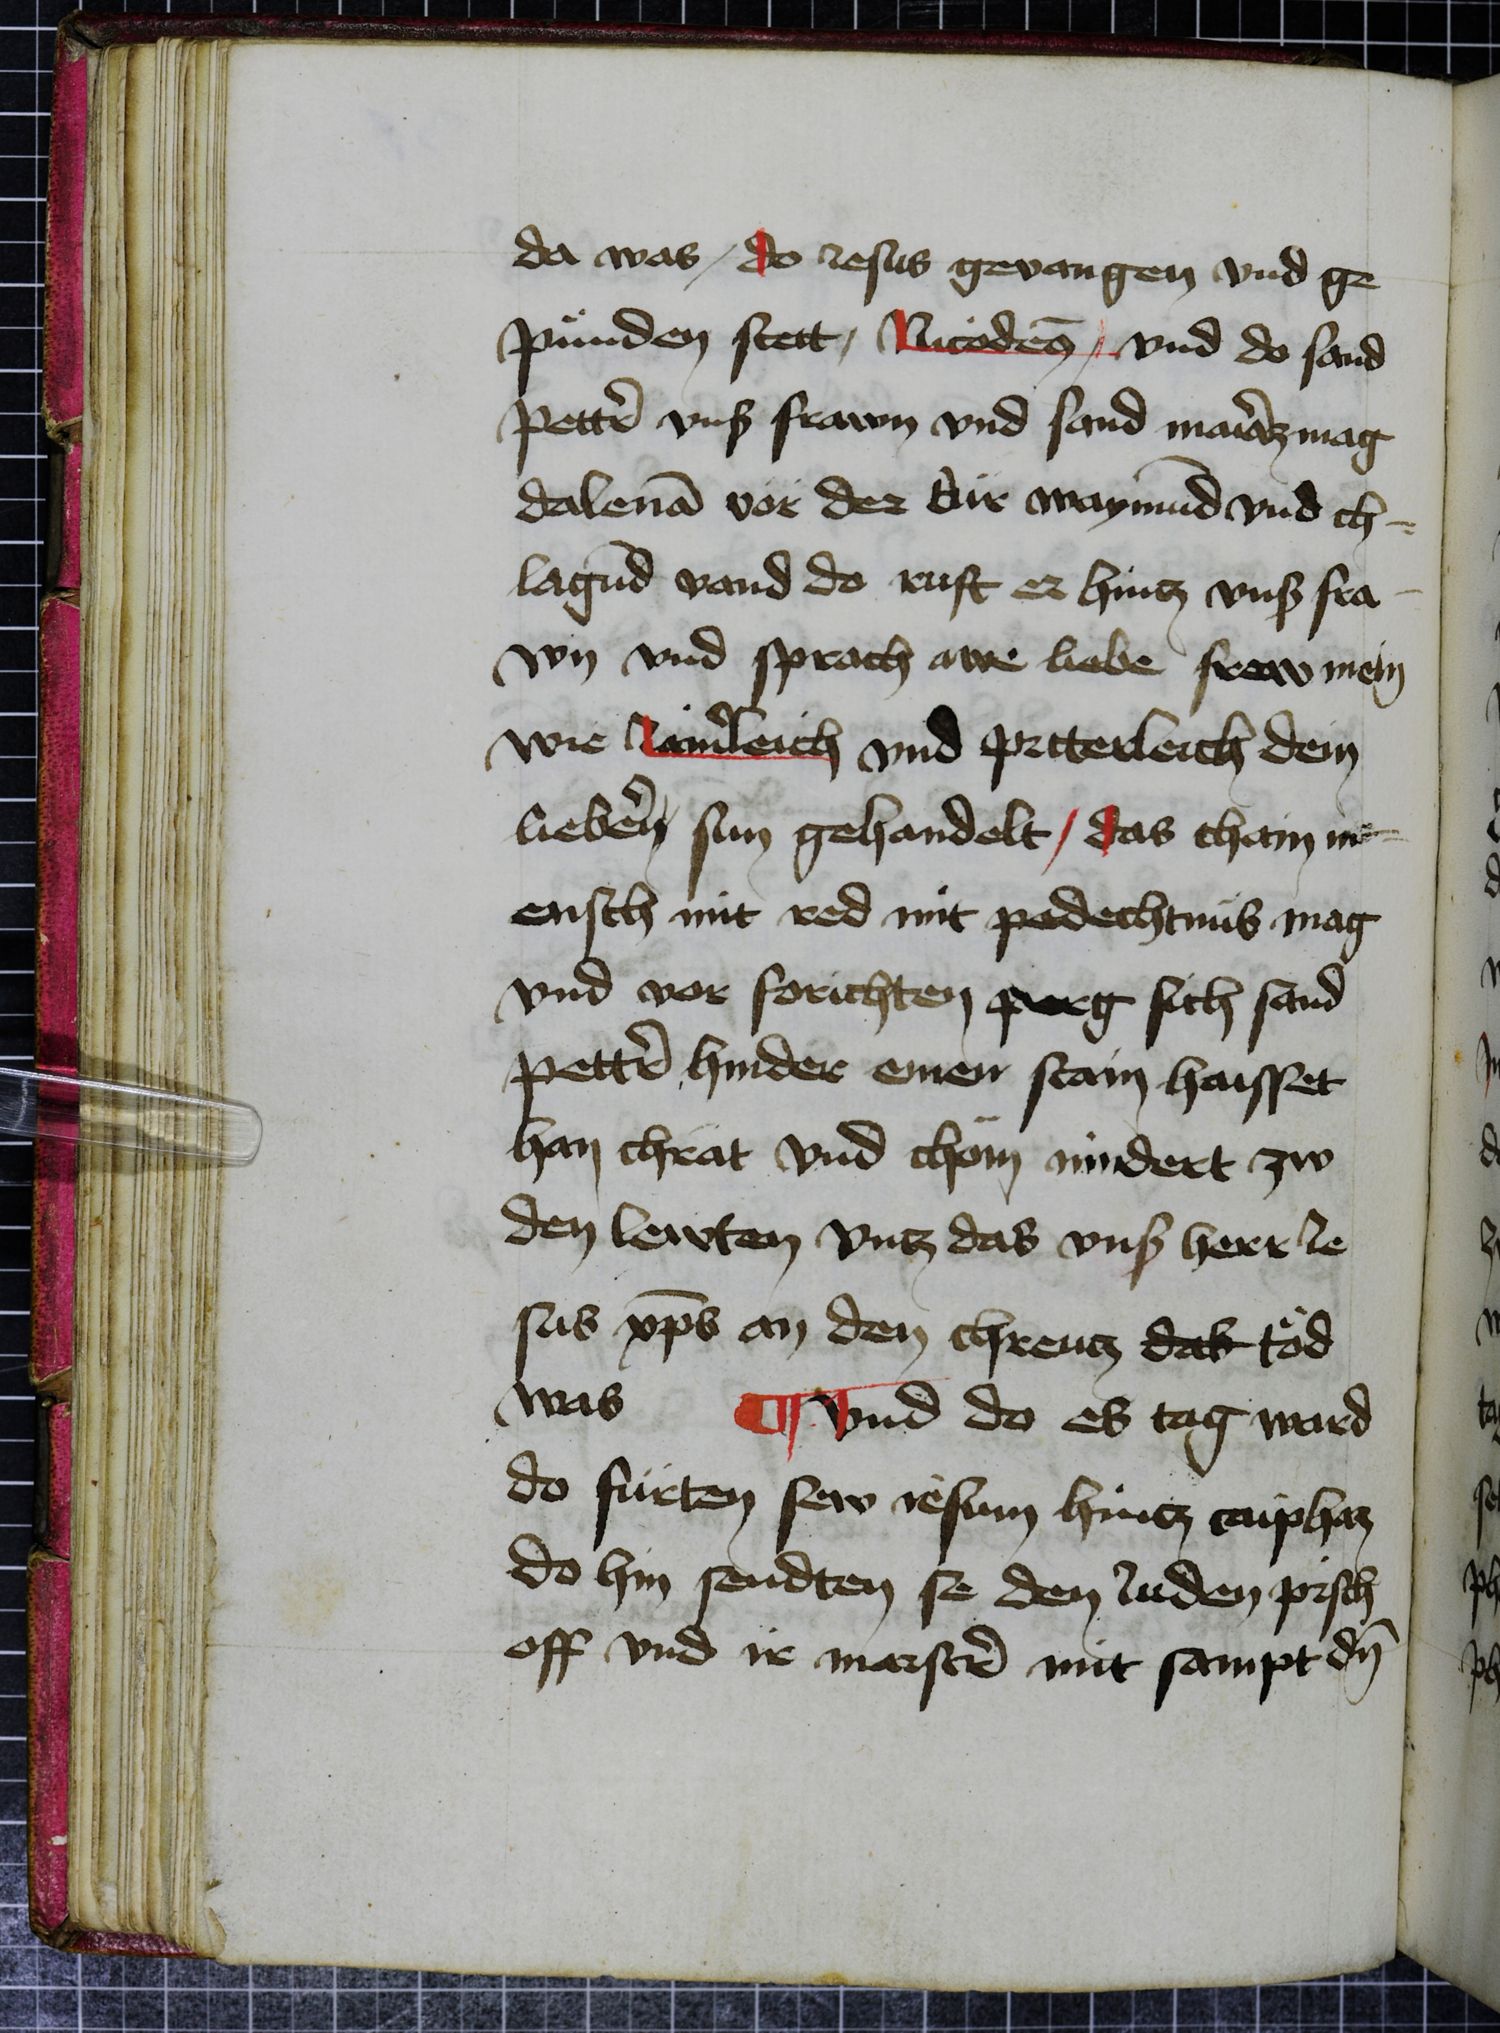 da was / do iesus gevangen vnd ge
pünden stett / Nicodeꝰ / vnd do sand
Pettr̄ vnß frawn vnd sand mariā mag
dalenā vor der tür waynūd vnd ch-
lagūd vand do ruft er hintz vnß fra-
wn vnd sprach awe liebe fraw mein
wie iāmleich vnd pitterleich dein
liebēn sun gehandelt / das chain m-
ensch mit red mit pedechtnüs mag
vnd vor forichten parg sich sand
Pettr̄ hinder einen stain haisset
han chrat vnd chöm nindert zw
den lewten vntz das vnß herr ie
sus xp̄s an den chreutz tod
was ¶ Vnd do es tag ward
do fürten sew iesum hintz cayphaz
do hin sendten se den iuden pisch
off vnd ir maistr̄ mit sampt dn̄